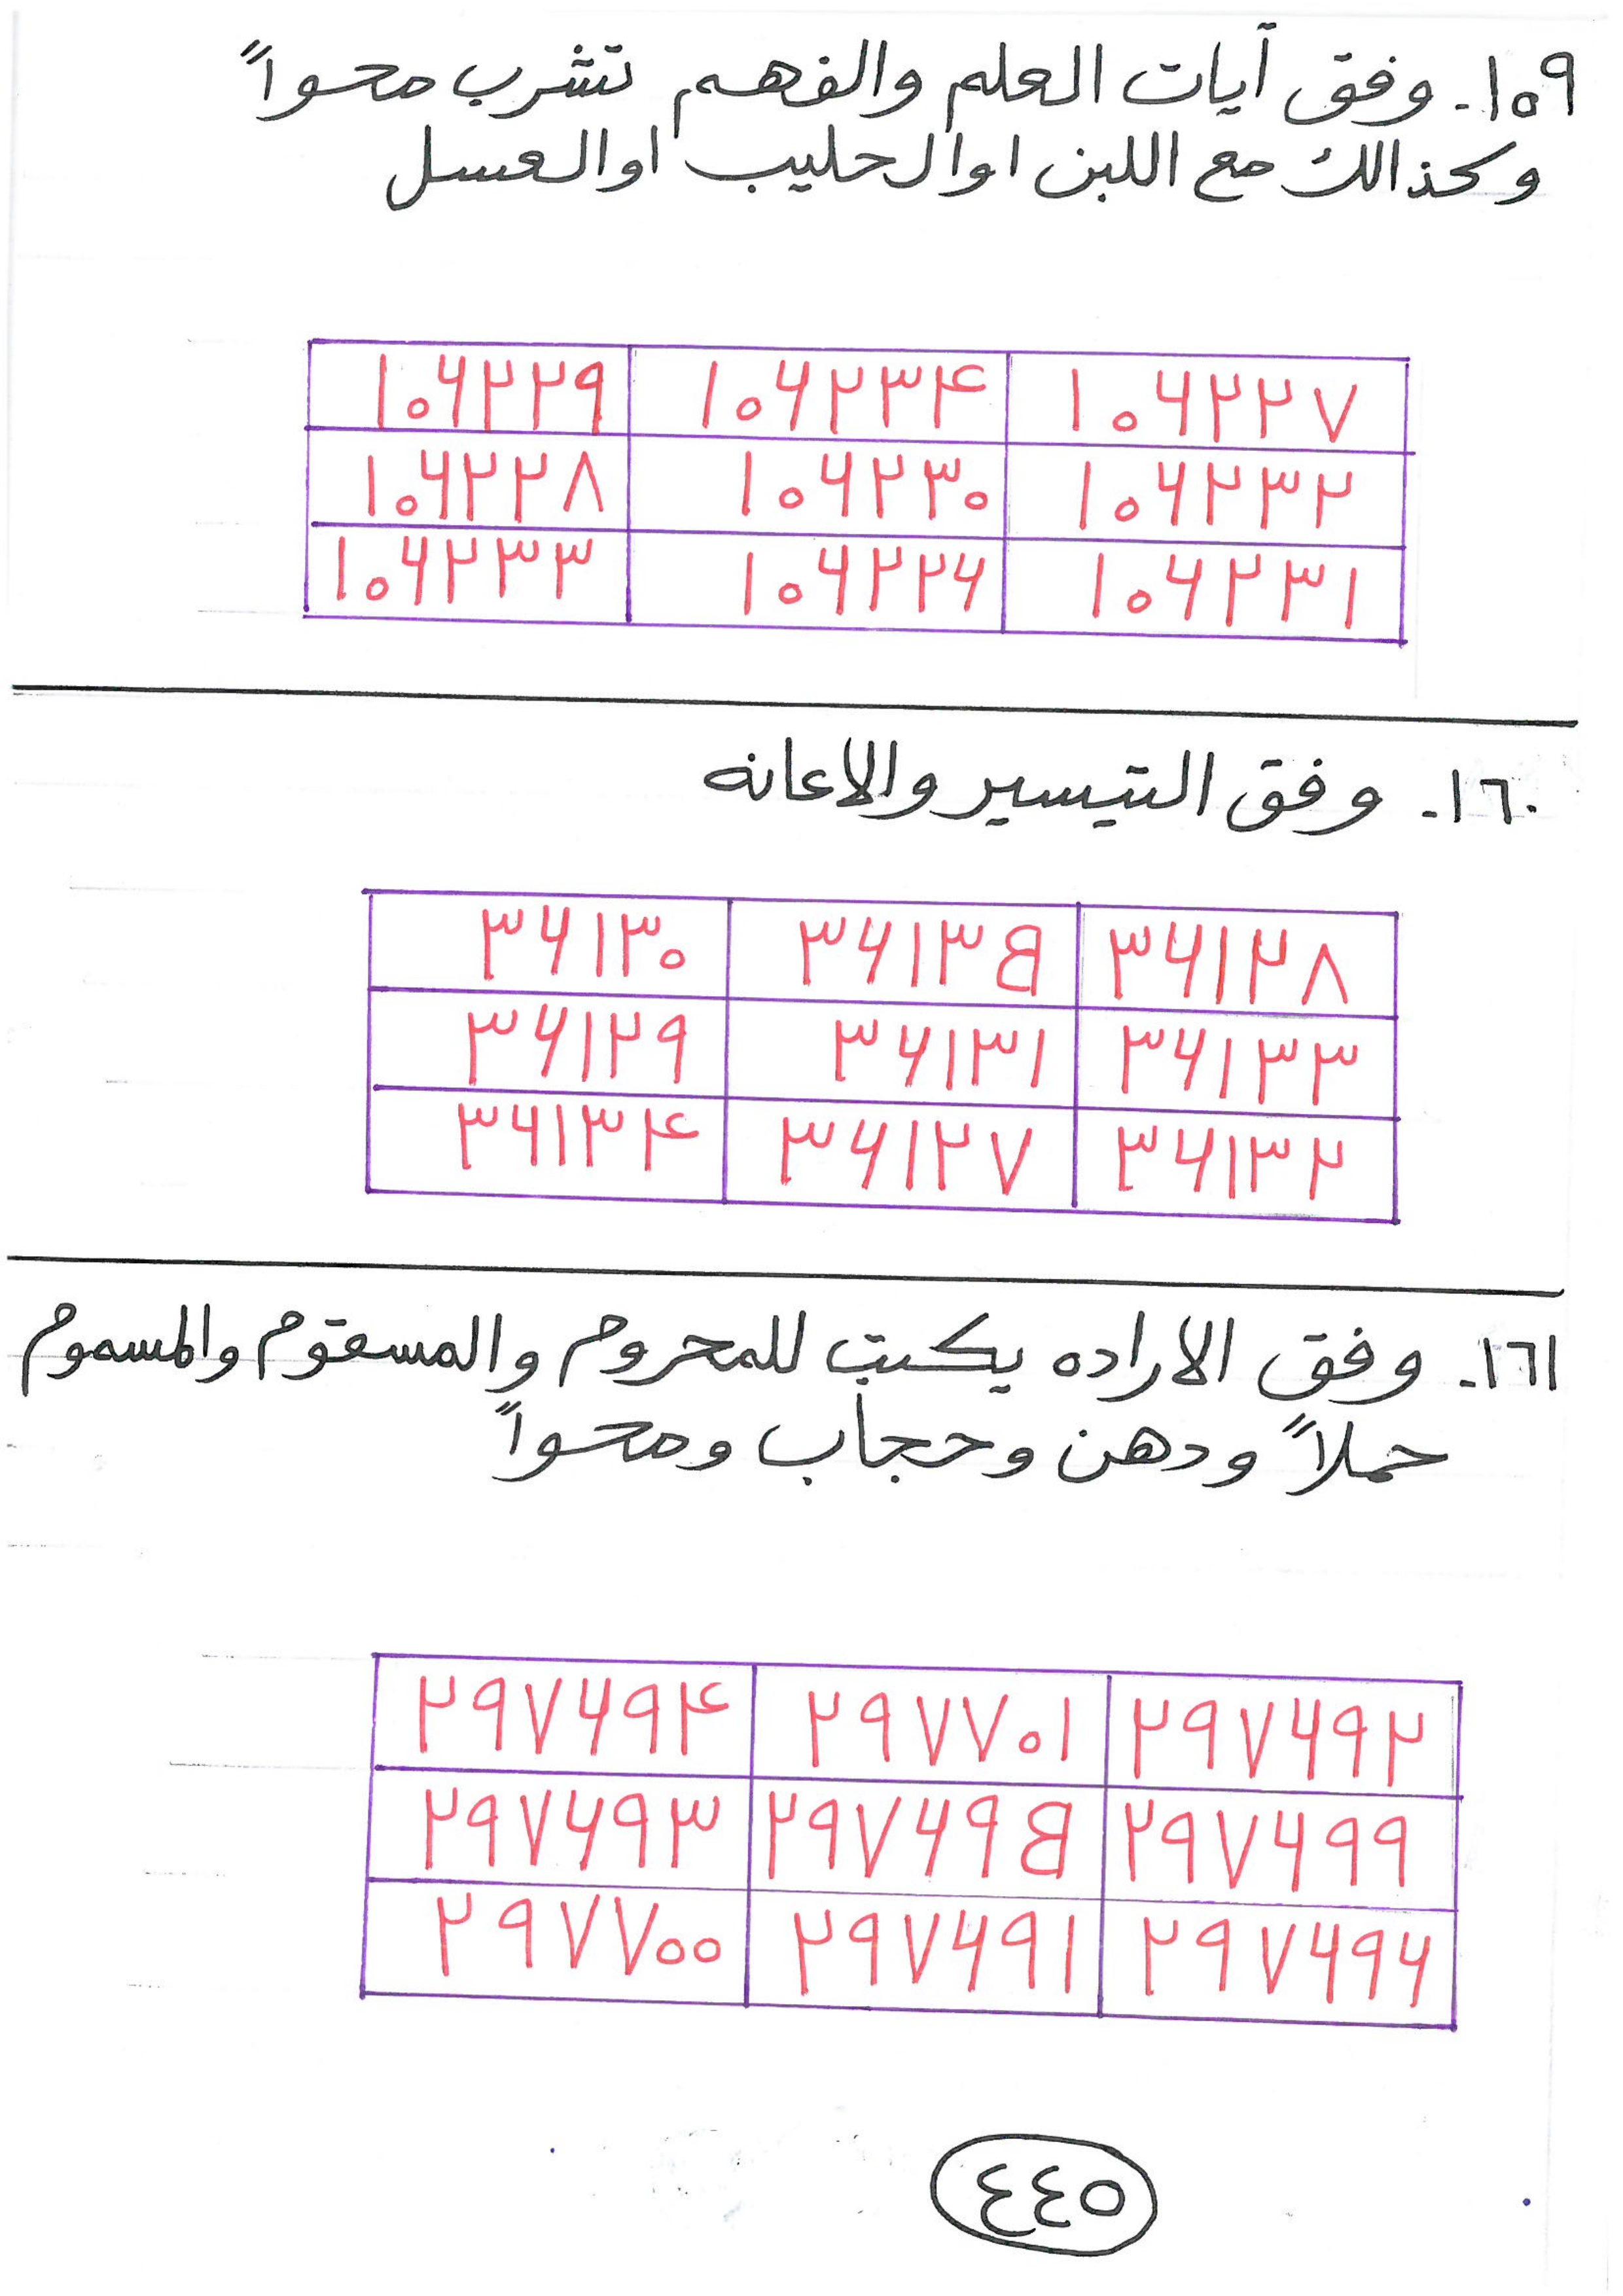 ١٥٩- وفق آيات العلم والفهم تشرب محواً
وكذالك مع اللبن او الحليب او العسل
١٠٦٢٢٩ ١٠٦٢٣۴ ١٠٦٢٢٧
١٠٦٢٢٨ ١٠٦٢٣٠ ١٠٦٢٣٢
١٠٦٢٣٣ ١٠٦٢٢٦ ١٠٦٢٣١
١٦٠- وفق التيسير والاعانه
٣٦١٣٠ ٣٦١٣٥ ٣٦١٢٨
٣٦١٢٩ ٣٦١٣١ ٣٦١٣٣
٣٦١٣۴ ٣٦١٢٧ ٣٦١٣٢
١٦١- وفق الاراده يكتب للمحروم والمسقوم والمسموم
حملاً ودهن وحجاب ومحواً
٢٩٧٦٩۴ ٢٩٧٧٠١ ٢٩٧٦٩٢
٢٩٧٦٩٣ ٢٩٧٦٩٥ ٢٩٧٦٩٩
٢٩٧٧٠٠ ٢٩٧٦٩١ ٢٩٧٦٩٦
٤٤٥